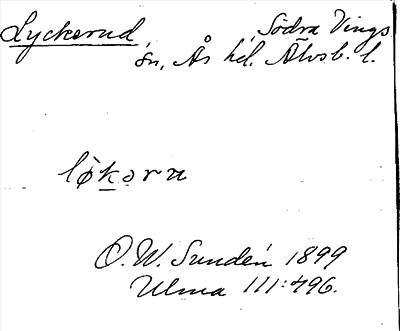 Lyckorud, Södra Vings
sn, Ås hd, Älvsb. l.
lø̀kọru
O.W. Sundén 1899
Ulma 111:496.